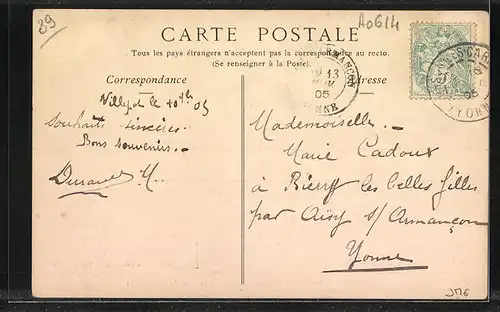 89
A0614
CARTE POSTALE
Tous les pays étrangers n'acceptent pas la correspondance au recto.
(Se renseigner à la Poste).
Correspondance
Adresse
ARMANÇON
13
05
YONNE
05
YONNE
le 10 05
Souhaits sincères.
Bons souvenirs.
Mademoiselle
Marie Cadoux
à Bierry les belles filles
par Aisy s/ Armançon
Yonne